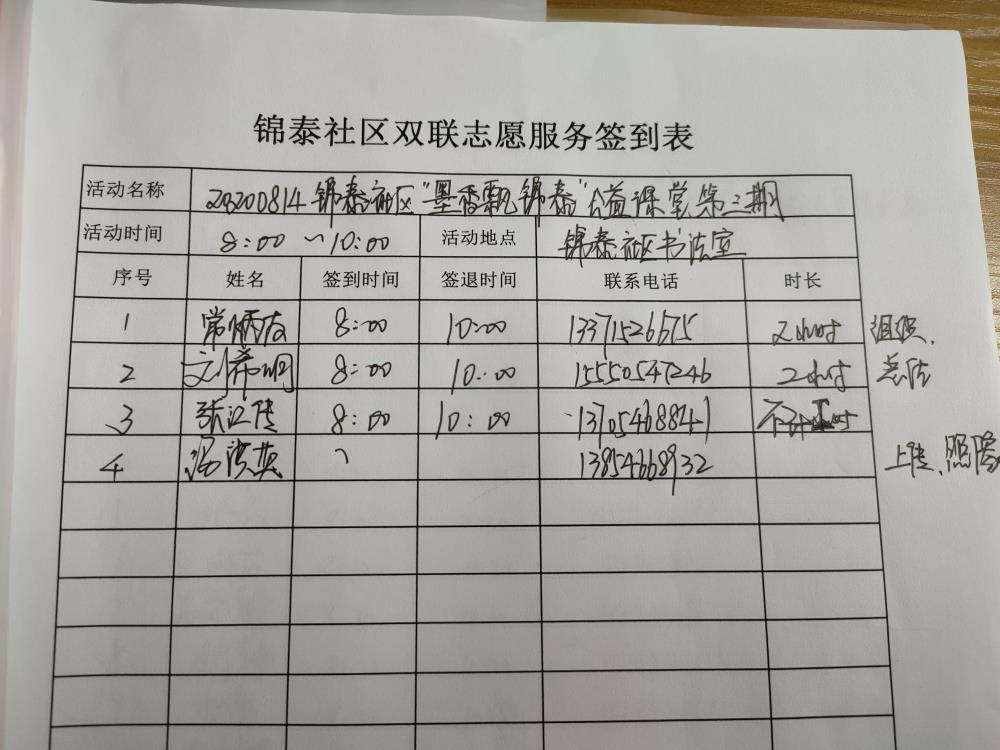 锦泰社区双联志愿服务签到表
活动名称 20200814锦泰社区"墨香飘锦泰"公益课堂第三期
活动时间 8:00~10:00 活动地点 锦泰社区书法室
序号 姓名 签到时间 签退时间 联系电话 时长
1 常炳友 8:00 10:00 13371526675 2小时 组织、
2 刘希明 8:00 10:00 15550547246 2小时 总结
3 张江传 8:00 10:00 13705468841
4 13854668932 上传、照像